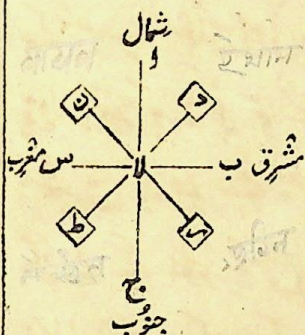 شمال
ا
ن د
س مغرب لا مشرق ب
ط ہ
ج
جنوب